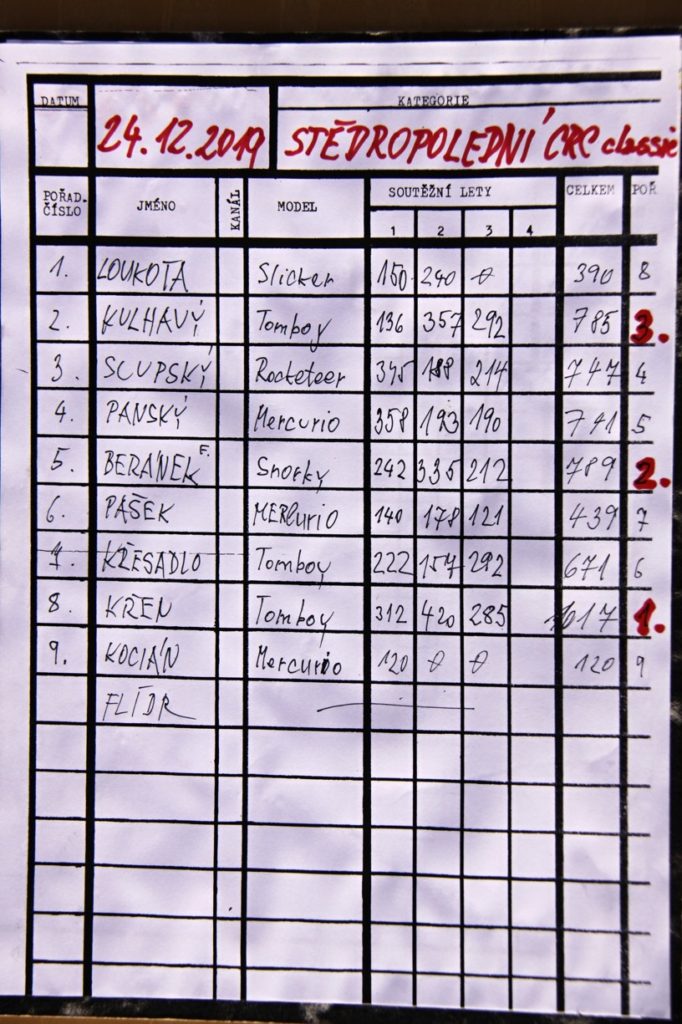 DATUM KATEGORIE
24.12.2019 STĚDROPOLEDNÍ CRC classic
POŘAD. ČÍSLO JMÉNO KANÁL MODEL SOUTĚŽNÍ LETY CELKEM POŘ
1 2 3 4
1. LOUKOTA Slicker 150 240 0 390 8
2. KULHAVÝ Tomboy 136 357 292 785 3.
3. SLUPSKÝ Rocketeer 345 188 214 747 4
4. PANSKÝ Mercurio 358 193 190 741 5
5. BERÁNEK F. Snorky 242 335 212 789 2.
6. PAŠEK MERcurio 140 178 121 439 7
7. KŽESADLO Tomboy 222 157 292 671 6
8. KŘEN Tomboy 312 420 285 1017 1.
9. KOCIÁN Mercurio 120 0 0 120 9
FLÍDR